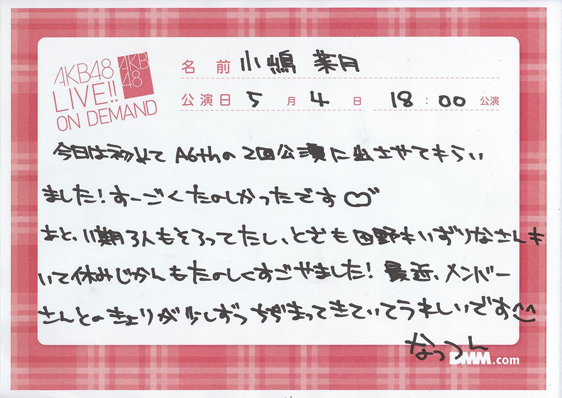 AKB48
LIVE!!
ON DEMAND
AKB
48
名前 小嶋 菜月
公演日 5月4日 18:00 公演
今日は初めて A6thの2回公演に出させてもらい
ました!すーごくたのしかったです♡
あと、11期3人もそろってたし、とども田野もいずりなさんも
いて休みじかんもたのしくすごせました!最近、メンバー
さんとのきょりが少しずつちぢまってきていてうれしいです
なっつん
DMM.com